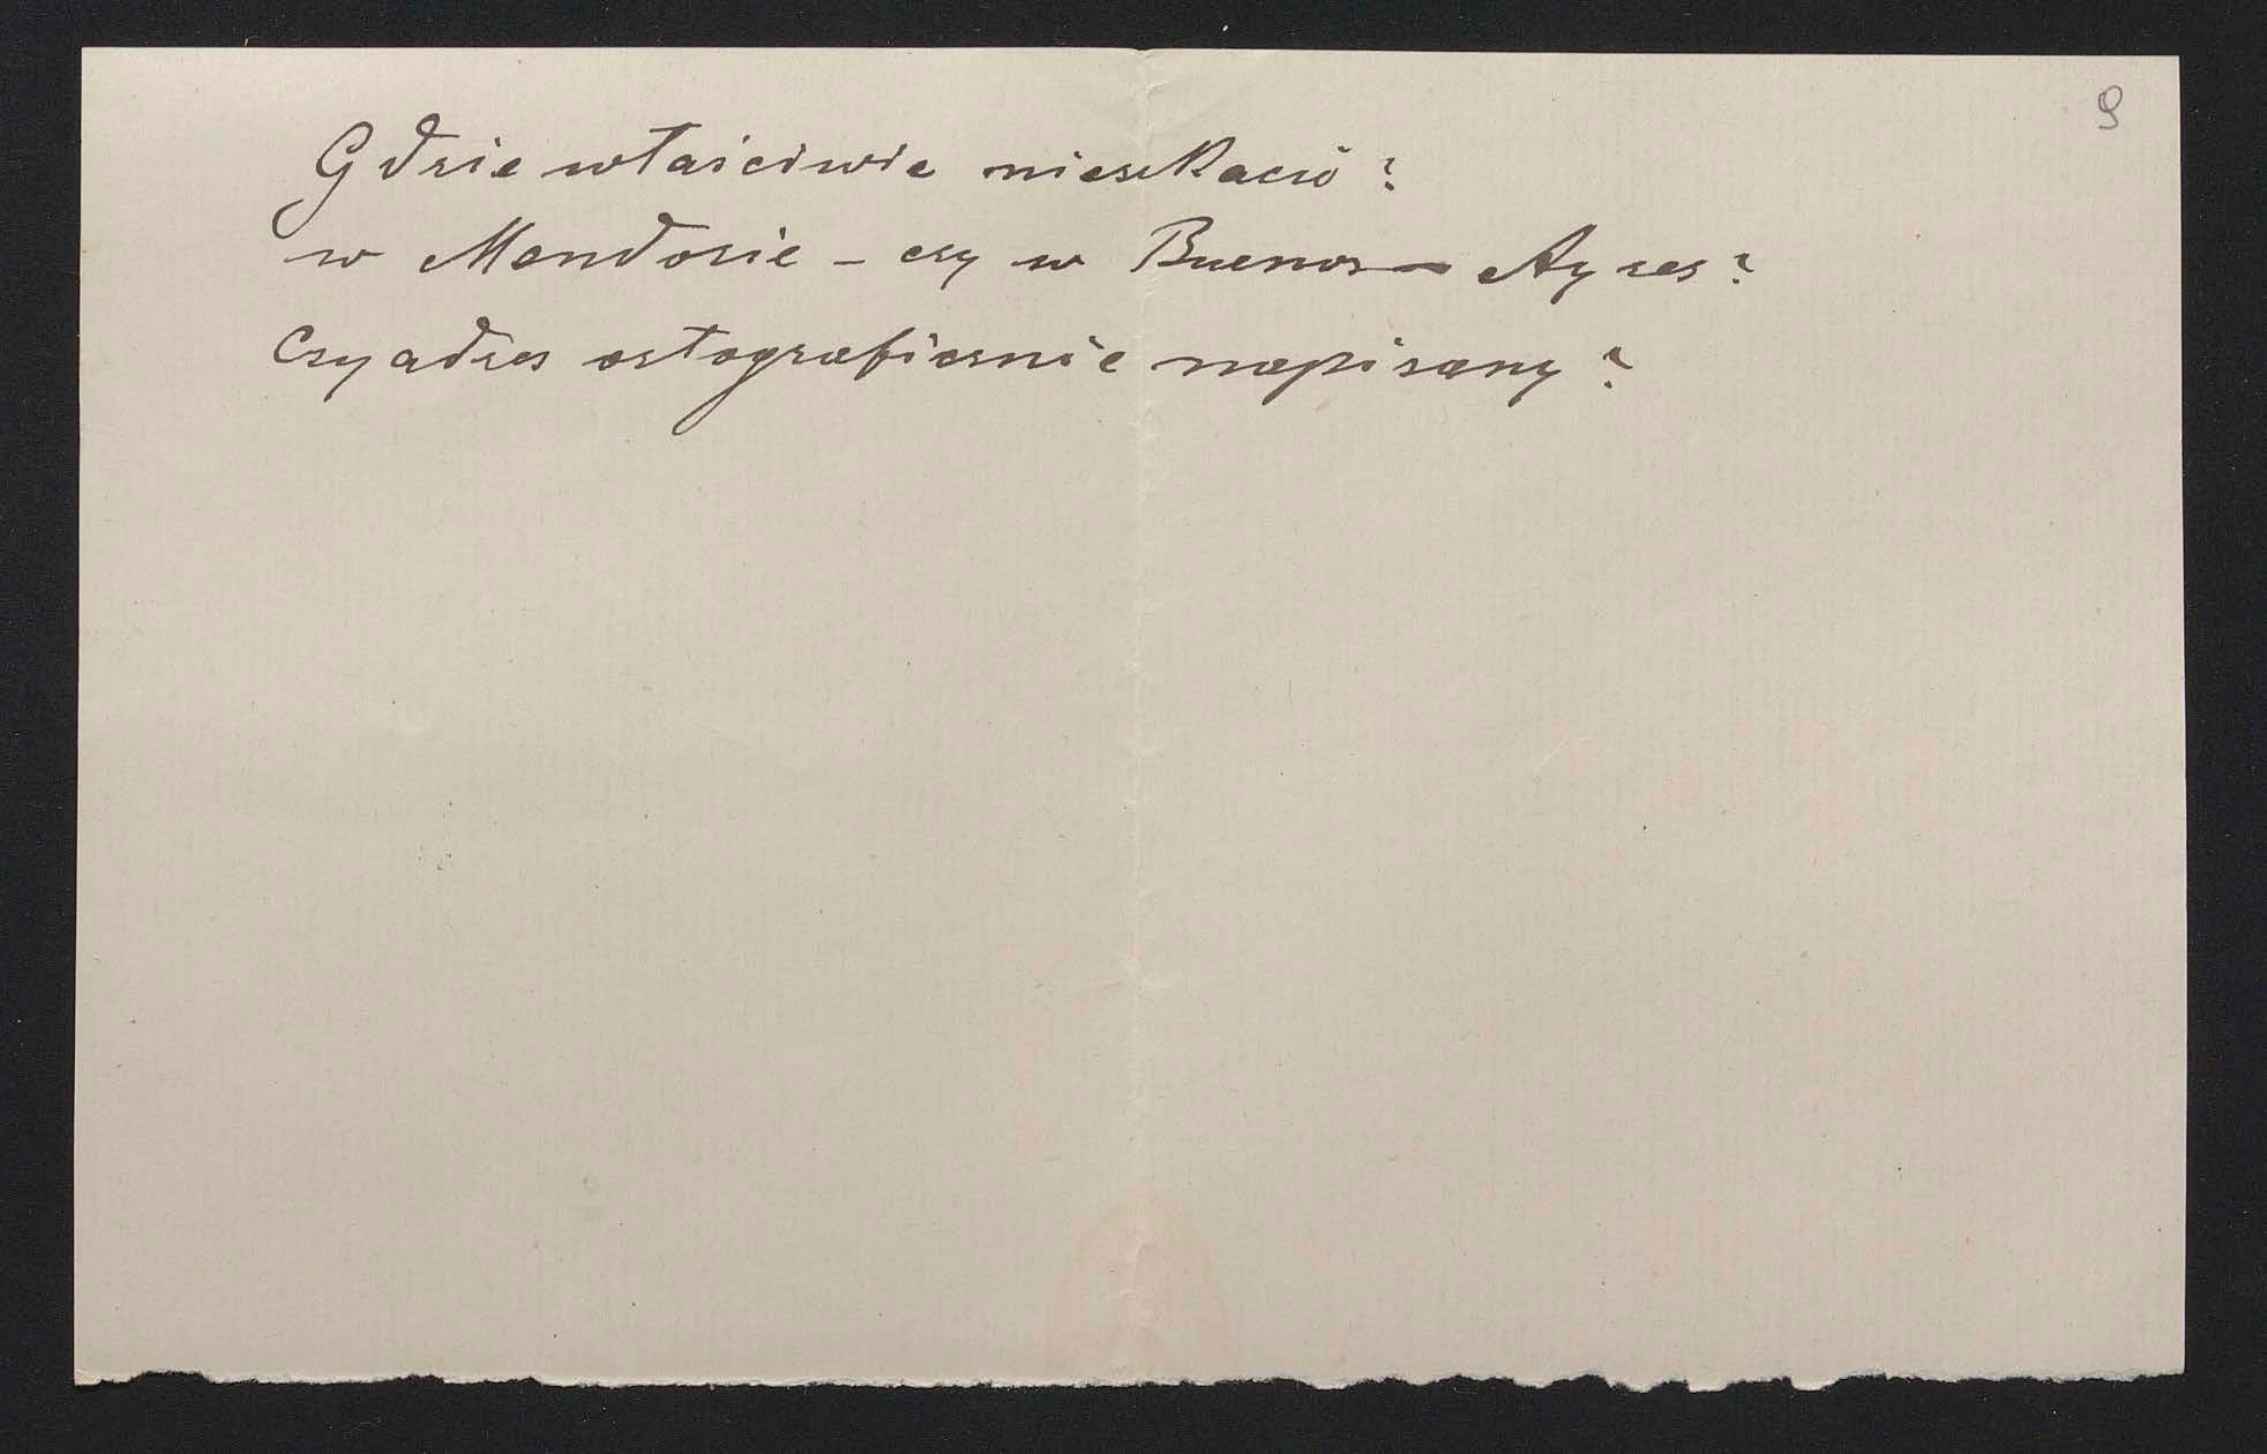 9
Gdzie właściwie mieszkacie?
w Mendozie – czy w Buenos – Ayres?
Czy adres ortograficznie napisany?